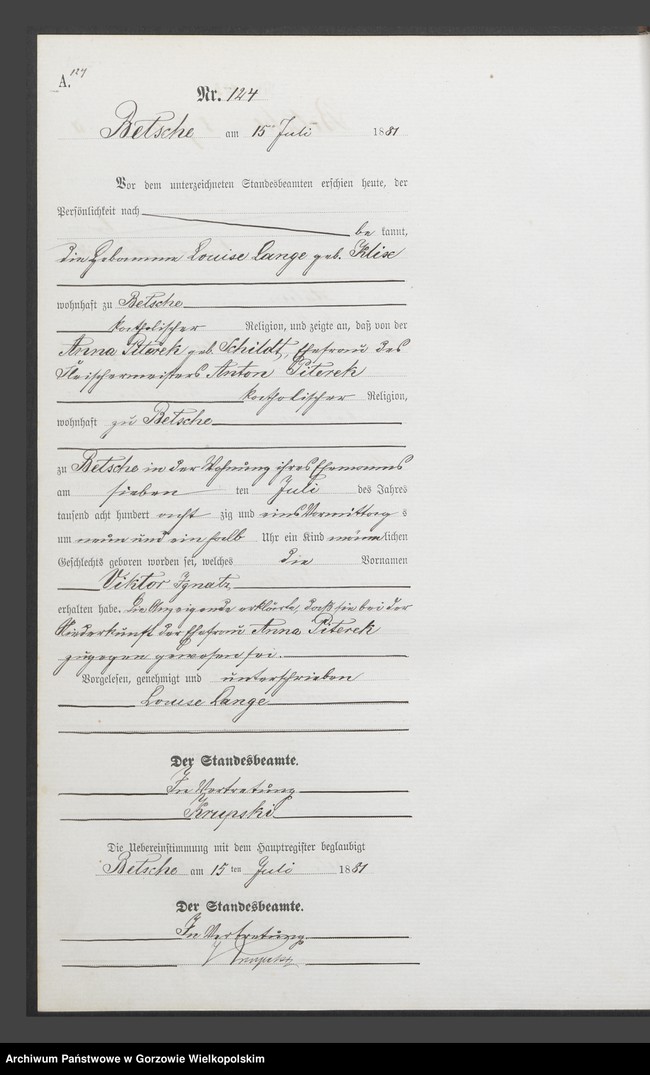 A.
127
Nr. 124
Betsche am 15ten Juli 1881
Vor dem unterzeichneten Standesbeamten erschien heute, der
Persönlichkeit nach
be kannt,
die Hebamme Louise Lange geb. Klix
wohnhaft zu Betsche
katholischer Religion, und zeigte an, daß von der
Anna Piterek geb. Schildt, Ehefrau des
Fleischermeisters Anton Piterek
katholischer Religion,
wohnhaft zu Betsche
zu Betsche in der Wohnung ihres Ehemanns
am sieben ten Juli des Jahres
tausend acht hundert acht zig und eins Vormittag s
um neun und ein halb Uhr ein Kind männ lichen
Geschlechts geboren worden sei, welches die Vornamen
Viktor Ignatz
erhalten habe. Die Anzeigende erklärte, daß sie bei der
Niederkunft der Ehefrau Anna Piterek
zugegen gewesen sei.
Vorgelesen, genehmigt und unterschrieben
Louise Lange
Der Standesbeamte.
In Vertretung
Krupski
Die Uebereinstimmung mit dem Hauptregister beglaubigt
Betsche am 15 ten Juli 1881
Der Standesbeamte.
In Vertretung
Krupski
Archiwum Państwowe w Gorzowie Wielkopolskim